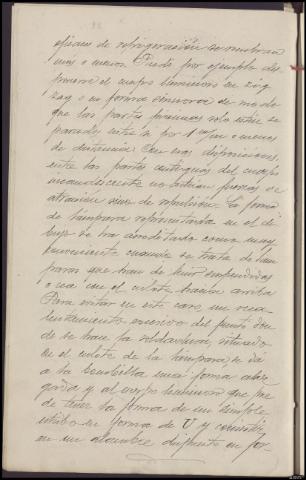 eficaces de refrigeración se nombran
mas o menos. Puede por ejemplo dis
ponerse el cuerpo luminoso en zig
zag o en forma sinuosa de modo
que las partes proximas solo estén se
paradas entre si por 1 m/m o menos
de distancia. Con esas disposiciones,
entre las partes contiguas del cuerpo
incandescente no actúan fuerzas de
atracción sino de repulsión. La forma
de lámpara representada en el di
bujo se ha acreditado como muy
conveniente cuando se trata de lám
paras que han de lucir suspendidas
o sea con el culote hacia arriba
Para evitar en este caso, un reca
lentamiento excesivo del punto don
de se hace la soldadura, situado
en el culote de la lámpara, se dá
a la bombilla una forma alar
gada y al cuerpo luminoso que pue
de tener la forma de un simple
estribo en forma de U y consistir
en un alambre dispuesto en for